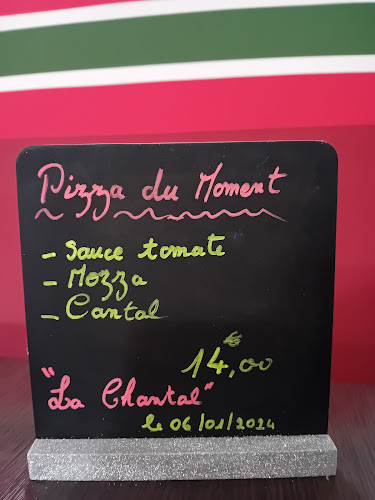 Pizza du Moment
- Sauce tomate
- Mozza
- Cantal
14,00 €
"La Chantal"
le 06/01/2024